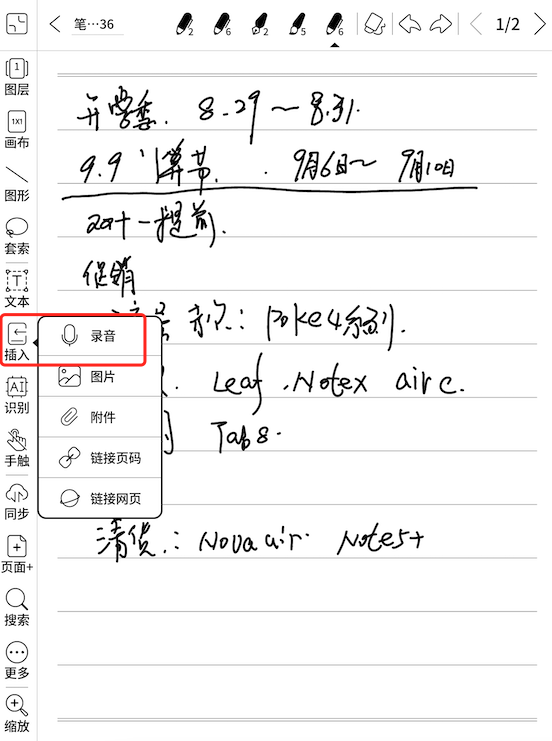 笔…36
2
6
2
5
6
1/2
1
图层
1X1
画布
图形
套索
T
文本
插入
AI
识别
手触
同步
页面+
搜索
更多
缩放
录音
图片
附件
链接页码
链接网页
开学季. 8.29～8.31.
9.9 算节. 9月6日～ 9月10日
双十一提前.
促销
: Poke4系列.
Leaf. Notex air c.
Tab8.
清货: Nova air. Note5+